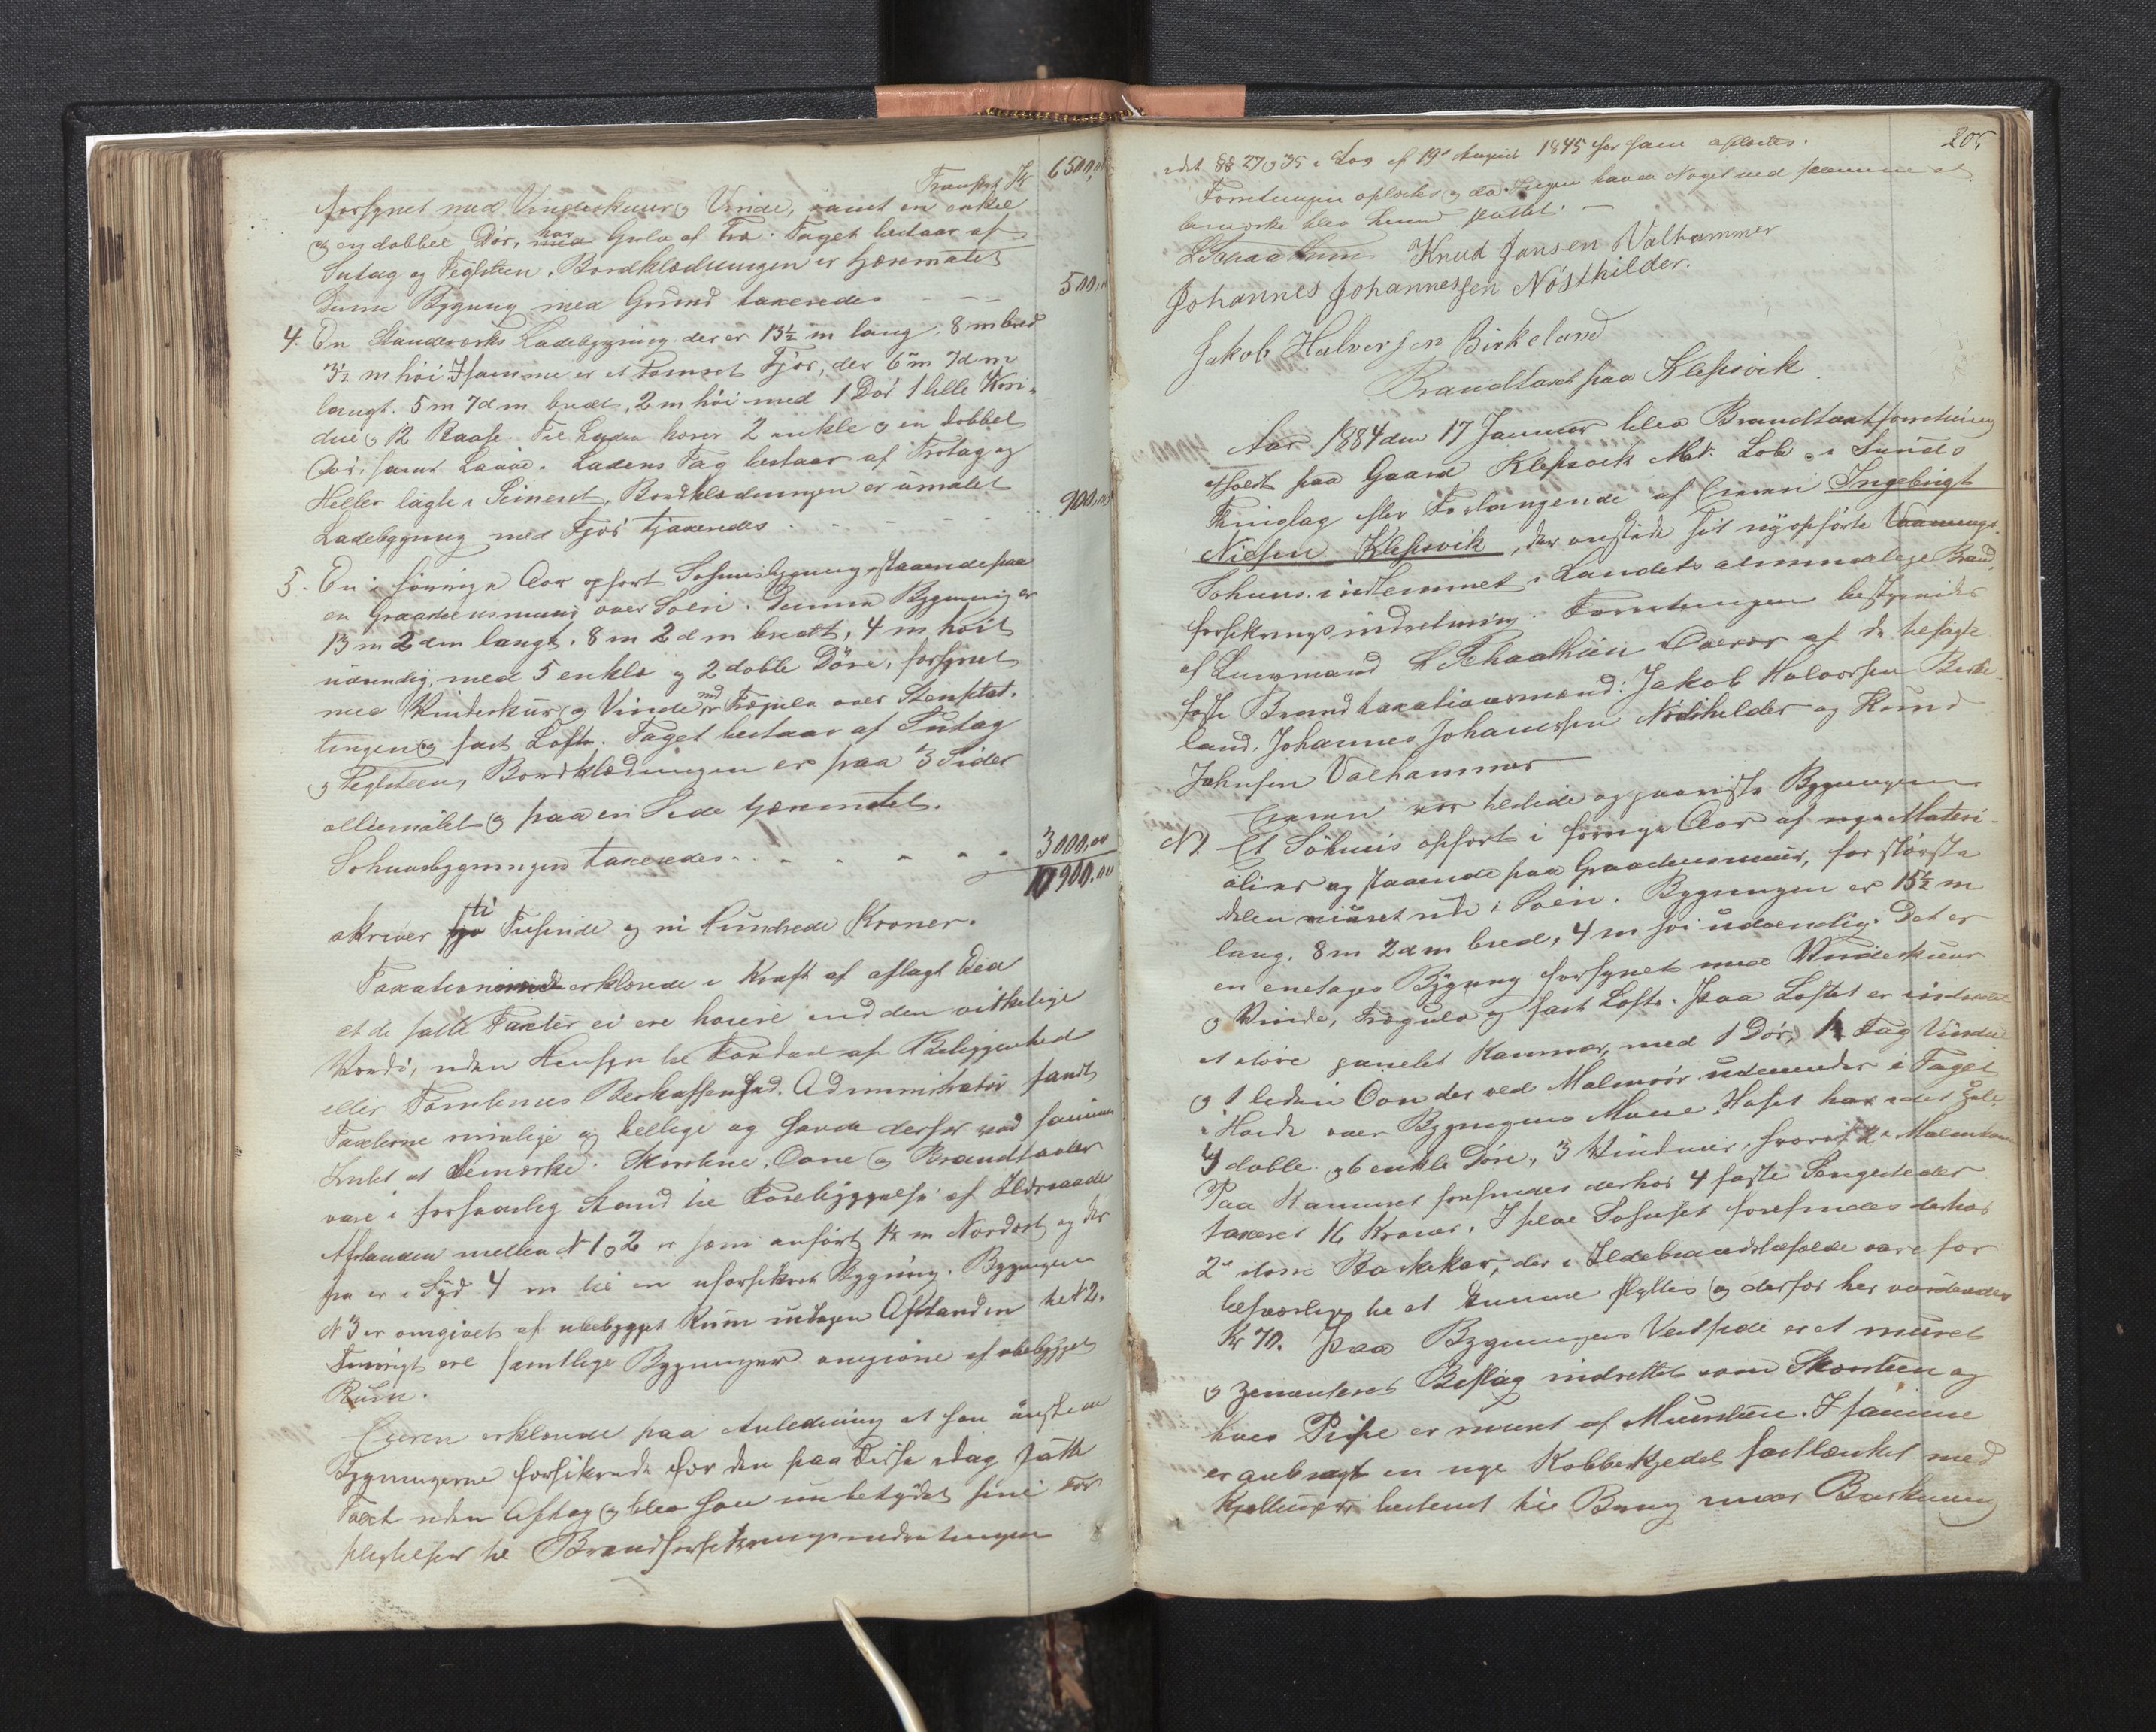 Transport Kr 6500,00
forsynet med Vindeskuur og Vinde, samt en enkel
og en dobbel Dør, har Gulv af Træ. Taget bestaar af
Sutag og Teglsteen. Bordklædningen er tjæremalet
Denne Bygning med Grund taxeredes — — 500,00
4. En Standværks Ladebygning der er 13½ m lang, 8 m bred
3½ m høi. I samme er et tømret Fjøs, der 6 m 7 dm
langt. 5 m 7 dm bredt, 2 m høi med 1 Dør 1 lille Vin-
due og 12 Baase. Til Laden hører 2 enkle og en dobbel
Dør, samt Laave. Ladens Tag bestaar af Trotag og
Heller lagte i Steineset. Bordklædningen er umalet
Ladebygning med Fjøs taxeredes . - - - - - 900,00
5. En i forrige Aar opført Søhuusbygning staaende paa
en Graasteensmuur over Søen. Denne Bygning er
13 m 2 dm langt, 8 m 2 dm bredt, 4 m høit
udvendig, med 5 enkle og 2 doble Døre, forsynet
med Vindeskuur og Vinde med Trægulv over Stensæt-
tingen og fast Loft. Taget bestaar af Sutag
og Teglsteen, Bordklædningen er paa 3 Sider
olliemalet og paa en Side tjæremalet.
Søhuusbygningen taxeredes . - - - - - 3000,00
10900,00
skriver ti Tusinde og ni Hundrede Kroner.
Taxationsmænd erklærede i Kraft af aflagt Eed
at de satte Taxter ei ere høiere end den virkelige
Værdi, uden Hensyn til Fordeel af Beliggenhed
eller Tomtenes Beskaffenhed. Administrator fandt
Taxterne rimelige og billige og havde derfor ved samme
Intet at bemærke. Skorstene, Ovne og Brandtavler
vare i forsvarlig Stand til Forebyggelse af Ildsvaade
Afstanden mellem N 1 og 2 er som anført 1½ m Nordost og der
fra er i Syd 4 m til en uforsikret Bygning. Bygningen
N 3 er omgivet af ubebygget Rum undtagen Afstanden til N 2.
Forøvrigt ere samtlige Bygninger omgivne af ubebygget
Rum.
Eieren erklærede paa Anledning at han ønskede
Bygningerne forsikrede for den paa disse idag satte
Taxt uden Aftag og blev han underrettet sine For
pligtelser til Brandforsikringsindretningen
205
idet §§ 27 og 35 i Lov af 19de August 1845 for ham oplæstes.
Forretningen oplæstes og da Ingen havde Noget ved samme at
bemærke blev denne sluttet. —
Knud Jansen Valhammer
Johannes Johannessen Nøsthilder.
Jakob Halversen Birkeland
Brandtaxt paa Klepsvik.
Aar 1884 den 17 Januar blev Brandtaxtforretning
afholdt paa Gaard Klepsvik Mat. Lob. i Sunds
Thinglag efter Forlangende af Eieren Ingebrigt
Nielsen Klepsvik, der ønskede sit nyopførte Vaanings-
Søhuus indlemmet i Landets almindelige Brand-
forsikringsindretning. Forretningen bestyredes
af Lensmand Overvær af de befalte
faste Brandtaxationsmænd: Jakob Halvorsen Birke-
land, Johannes Johannessen Nøsthilder og Knud
Johnsen Valhammer
Eieren var tilstede og paaviste Bygningen
N 1. Et Søhuus opført i forrige Aar af nye Materi-
alier og staaende paa Graasteensmuur, for største
delen muret ude i Søen. Bygningen er 15½ m
lang, 8 m 2 dm bred, 4 m høi udvendig. Det er
en enetages Bygning forsynet med Vindeskuur
og Vinde, Trægulv og fast Loft. Paa Loftet er indredet
et større panelet Kammer, med 1 Dør, 1 Fag Vindue
og 1 liden Ovn der ved Malmrør udmunder i Taget
i Høide over Bygningens Møne. Huset har i det Hele
4 doble og 6 enkle Døre, 3 Vinduer, hvoraf 2
Paa Kammeret forefindes derhos 4 faste Sengesteder
taxeret 16 Kroner. I selve Søhuset forefindes derhos
2de store Barkekar, der i Ildebrandstilfælde vare for
besværlige til at kunne flyttes og derfor her vurderedes
Kr 70. Paa Bygningens Vestside er et muret
og zementeret Beslag indrettet som Skorsteen og
hvis Pipe er muret af Muursteen. I samme
er anbragt en nye Kobberkjedel fastlænket med
bestemt til Brug under Barkning